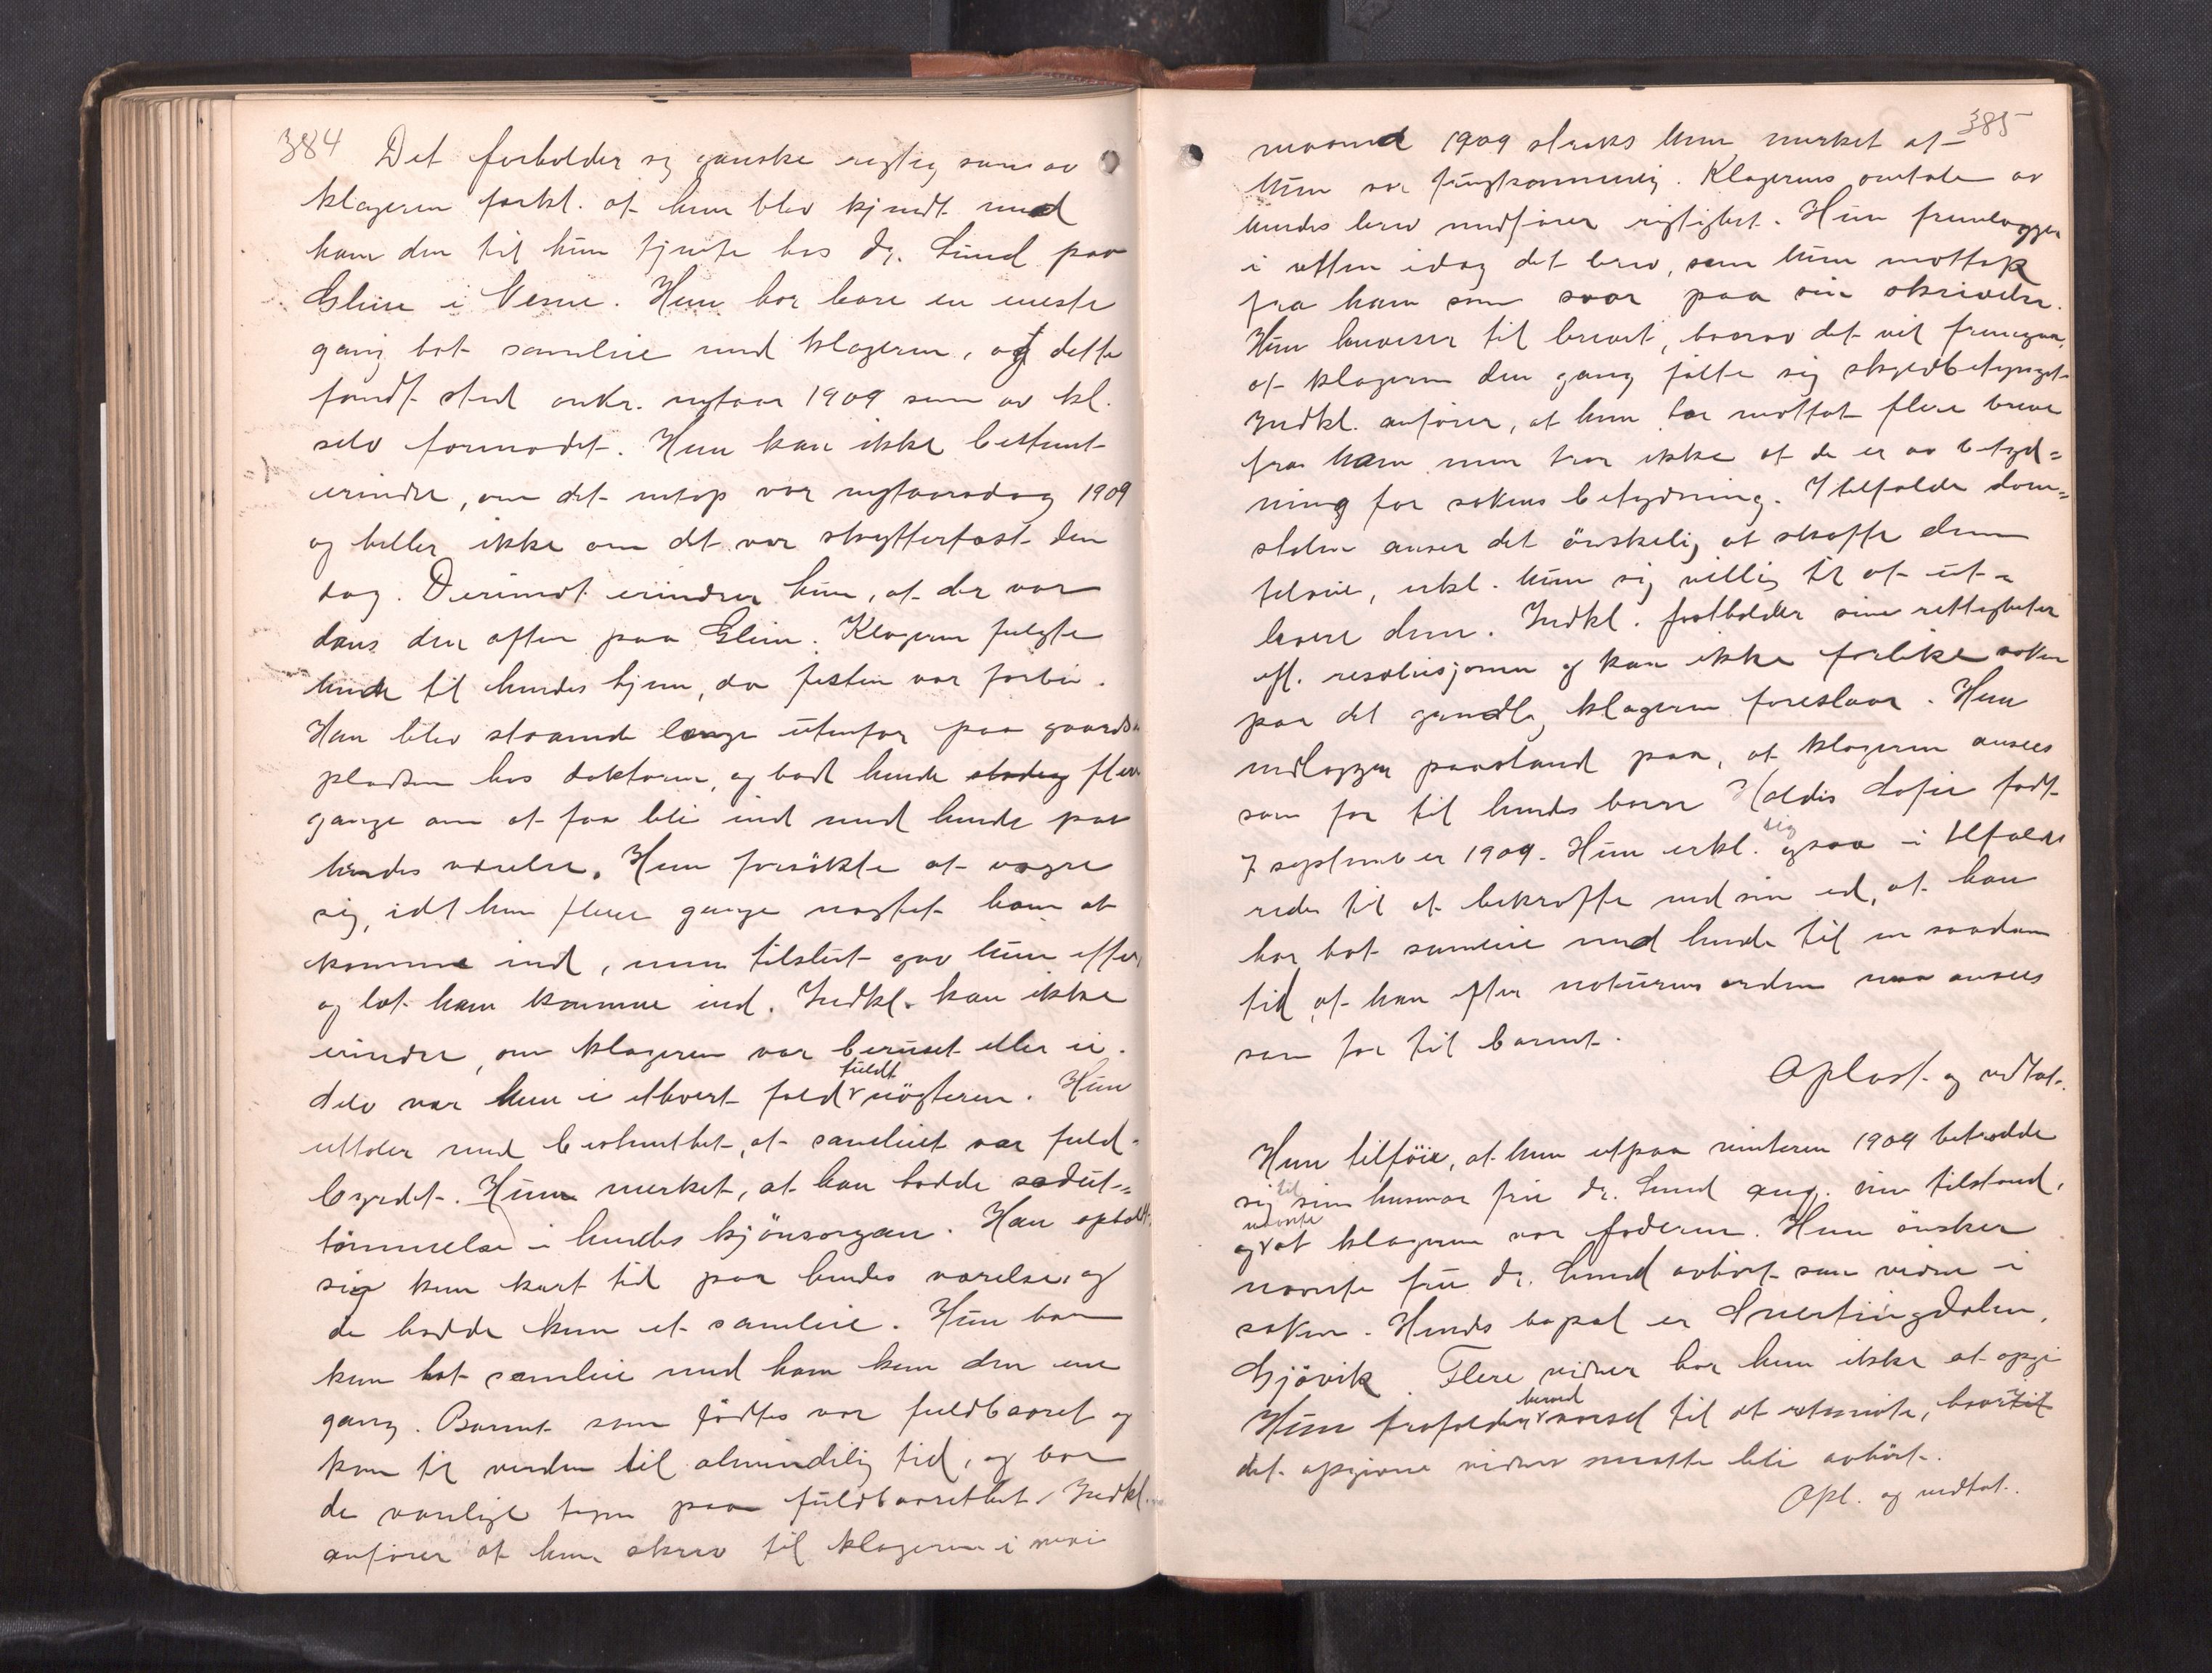 384
Det forholder sig ganske rigtig som av
klageren forkl. at hun blev kjendt med
ham den tid hun tjente hos dr. Lund paa
i . Hun har bare en eneste
gang hat samleie med klageren, og dette
fandt sted omkr. nytaar 1909 som av kl.
selv formodet. Hun kan ikke bestemt
erindre, om det netop var nytaarsdag 1909
og heller ikke om det var skytterfæst den
dag. Derimot erindrer hun, at der var
dans den aften paa . Klageren fulgte
hende til hendes hjem, da festen var forbi.
Han blev staaende længe utenfor paa gaards-
pladsen hos doktoren, og bad hende stadig flere
gange om at faa bli ind med hende paa
hendes værelse. Hun forsökte at vægre
sig, idet hun flere gange nægtet ham at
komme ind, men tilslut gav hun efter,
og lot ham komme ind. Indkl. kan ikke
erindre, om klageren var beruset eller ei.
Selv var hun i ethvert fald fuldt nögteren. Hun
uttaler med bestemthet, at samleiet var fuld-
byrdet. Hun merket, at han hadde sædut-
tömmelse i hendes kjönsorgan. Han opholdt
sig kun kort tid paa hendes værelse, og
de hadde kun et samleie. Hun har
kun hat samleie med ham kun den ene
gang. Barnet som födtes var fuldbaaret og
kom til verden til almindelig tid, og bar
de vanlige tegn paa fuldbaarethet. Indkl.
anförer at hun skrev til klageren i mai
385
maaned 1909 straks hun merket at
hun var frugtsommelig. Klagerens omtale av
hendes brev medförer rigtighet. Hun fremlægger
i retten idag det brev, som hun mottok
fra ham som svar paa sin skrivelse.
Hun henviser til brevet, hvorav det vil fremgaa,
at klageren den gang fölte sig skyldbetynget.
Indkl. anförer, at hun har mottat flere breve
fra ham men tror ikke at de er av betyd-
ning for sakens betydning. I tilfælde dom-
stolen anser det önskelig at skaffe dem
tilveie, erkl. hun sig villig til at ut-
levere dem. Indkl. fastholder sine rettigheter
eft. resolusjonen og kan ikke forlike saken
paa det grundlag klageren foreslaar. Hun
nedlægger paastand paa, at klageren ansees
som far til hendes barn Haldis Sofie født
7 september 1909. Hun erkl. sig ogsaa i tilfælde
rede til at bekræfte med sin ed, at han
har hat samleie med hende til en saadan
tid, at han efter naturens orden maa ansees
som far til barnet.
Oplæst og vedtat.
Hun tilföier, at hun utpaa vinteren 1909 betrodde
sig til sin husmor fru dr. Lund ang. sin tilstand,
og nævnte at klageren var faderen. Hun önsker
nævnte fru dr. Lund avhört som vidne i
saken. Hendes bopæl er Snertingdalen,
Gjövik. Flere vidner har hun ikke at opgi
Hun frafalder herved varsel til et retsmöte, hvortil
det opgivne vidne maatte bli avhört.
Opl. og vedtat.